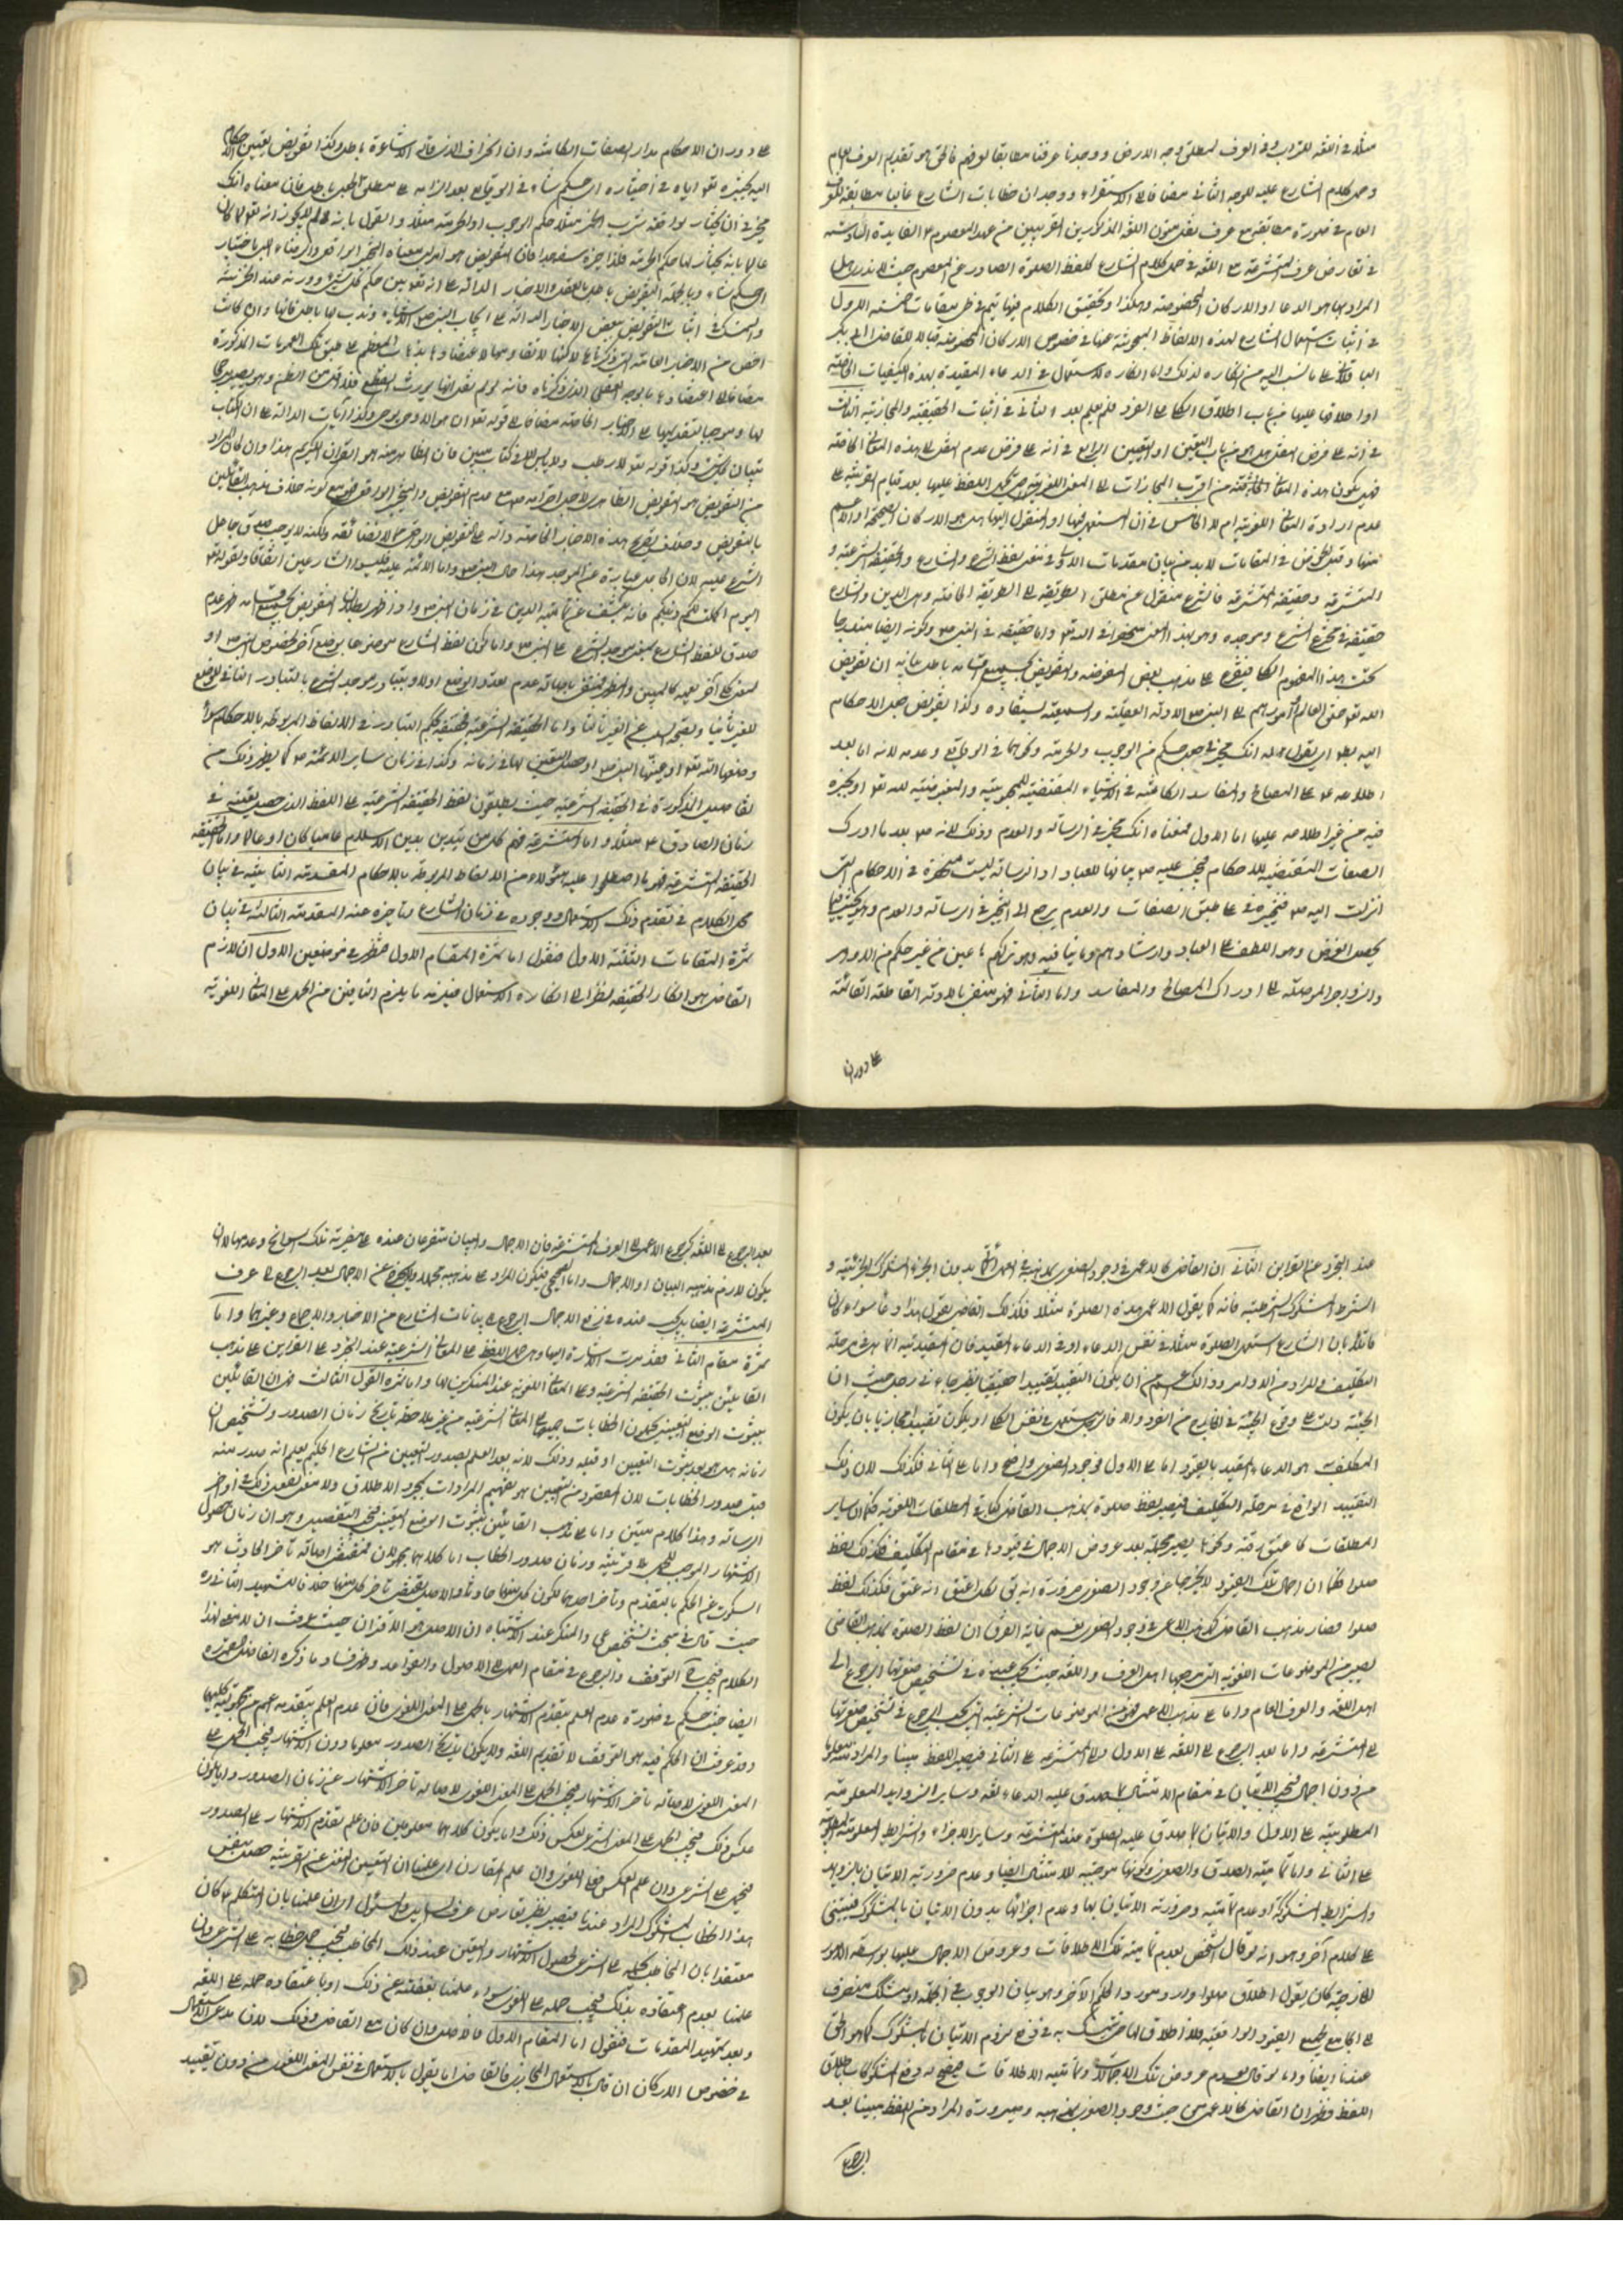 مثلا في اللغة للتراب وفي العرف لمطلق وجه الارض ووجدنا عرفنا مطابقا لعرفهم فالحق هو تقديم العرف العام
وحمل كلام الشارع عليه للوجه الثاني مضافا الى الاستقراء ووجدان خطابات الشارع غالبا مطابقة للعرف
العام في صورة مطابقته مع عرف نقلة متون اللغة المذكورين القريبين من عهد المعصوم الفايدة السادسة
في تعارض عرف المتشرعة مع اللغة في حمل كلام الشارع كلفظ الصلوة الصادر عن المعصوم حيث لا ندري هل
المراد بها هو الدعاء او الاركان المخصوصة وهكذا وتحقيق الكلام فيها يتم في طي مقامات خمسة الاول
في اثبات استعمال الشارع لهذه الالفاظ المبحوثة عنها في خصوص الاركان المخصوصة قبالا للقاضي ابي بكر
الباقلاني على ما نسب اليه من انكاره لذلك واما انكاره الاستعمال في الدعاء المقيدة بهذه الكيفيات الخاصة
او اطلاقها عليها من باب اطلاق الكلي على الفرد فلم يعلم بعد الثاني في اثبات الحقيقية والمجازية الثالث
في انه على فرض النقل هل هو من باب التعيين او التعين الرابع في انه على فرض عدم النقل الى هذه المعاني الخاصة
فهل يكون هذه المعاني الحادثة من اقرب المجازات الى المعنى اللغوي حتى يحمل اللفظ عليها بعد قيام القرينة على
عدم ارادة المعاني اللغوية ام لا الخامس في ان المستعمل فيها او المنقول اليها هل هو الاركان الصحيحة او الاعم
منها وقبل الخوض في المقامات لا بد من بيان مقدمات الاولى في معنى لفظ الشرع والشارع والحقيقة الشرعية و
المتشرعة وحقيقة المتشرعة فالشرع منقول عن مطلق الطريقة الى الطريقة الخاصة وهي الدين والشارع
حقيقة في مخترع الشرع وموجده وهو بهذا المعنى منحصر في الله تعالى واما حقيقة في النبي وكونه ايضا مندرجا
تحت هذا المفهوم الكلي فيتفرع على مذهب بعض المفوضة والتفويض بجميع اقسامه باطل
الله تعالى خلق العالم وفوض امورهم الى النبي الادلة العقلية والسمعية وكذا تفويض جعل الاحكام
اليه بان يقول له انك مخير في جعل حكم من الوجوب والحرمة ونحوهما في الوقايع وعدمه لانه اما بعد
اطلاعه على المصالح والمفاسد الكامنة في الاشياء المقتضية للمحبوبية والمبغوضية لله تعالى او تخيره
فيه من غير اطلاعه عليها اما الاول فمعناه انك مخير في الرسالة والعدم وذلك لانه بعد ما ادرك
الصفات المقتضية للاحكام فيجب عليه بيانها للعباد اذ الرسالة ليست منحصرة في الاحكام التي
انزلت اليه فتخييره في ما طبق الصفات والعدم يرجع الى التخيير في الرسالة والعدم
يحصل الغرض وهو اللطف على العباد وارشادهم وما ينافيه وهو تركهم ضايعين من غير حكم من الاوامر
والزواجر الموصلة الى ادراك المصالح والمفاسد واما الثاني فهو منفي بالادلة القاطعة القائمة
على دوران
على دوران الاحكام مدار الصفات الكامنة وان الجزاف الذي قال الاشاعرة باطل وكذا تفويض تعيين الاحكام
اليه بتخييره تعالى اياه في اختياره اي حكم شاء في الوقايع بعد الزامه على مطلق الجعل باطل فان معناه انك
مخير في ان تختار لواقعة شرب الخمر مثلا حكم الوجوب او الحرمة مثلا والقول بانه لم لا يجوز انه تعالى لما كان
عالما بانه يختار لها حكم الحرمة فلذا خيره سفه هذا فان التفويض هو امر ليس معناه التخيير الواقعي والرضاء بالاختيار
اي حكم شاء وبالجملة التفويض باطل بالعقل والاخبار الدالة على انه تعالى بين حكم كل شيء وورد عنه الجزئية
والتمسك في اثبات التفويض ببعض الاخبار الدالة على ايجاب النبي الاشياء وندب لها باطل فانها وان كانت
اخص من الاخبار العامة التي ذكرناها لكنها لا تقاومها لاعتضادها بذهاب المعظم على طبق تلك العمومات المذكورة
مضافا الى اعتضادها بالوجه العقلي الذي ذكرناه فانه لو لم نقل انها يورث القطع فلا اقل من الظن وهو يصير مرجحا
لها وموجبا لتقديمها على الاخبار الخاصة مضافا الى قوله تعالى ان هو الا وحي يوحى وكذا آيات الدالة على ان الكتاب
تبيان لكل شيء وكذا قوله تعالى لا رطب ولا يابس الا في كتاب مبين فان الظاهر منه هو القران الكريم هذا وان كان المراد
من التفويض هو التفويض الظاهري الاحترامي مع عدم التفويض والتخيير الواقعي فهو مع كونه خلاف مذهب القائلين
بالتفويض وخلاف تصريح هذه الاخبار الخاصة دالة على التفويض الواقعي لا نضايقه ولكنه لا يوجب صدق جاعل
الشرع عليه لان الجاعل عبارة عن الموجد هذا حال النبي واما الائمة عليهم السلام فليسوا الشارعين اتفاقا ولقوله تعالى
اليوم اكملت لكم دينكم فانه يكشف عن تمامية الدين في زمان النبي واذ ظهر بطلان التفويض بجميع اقسامه ظهر عدم
صدق لفظ الشارع بمعنى موجد الشرع على النبي واما كون لفظ الشارع موضوعا بوضع آخر لخصوص النبي او
لمعنى كلي آخر يعمه كالمبين والمظهر فمنفي باصالة عدم تعدد الوضع اولا وبتبادر موجد الشرع بالتبادر النافي للوضع
للغير ثانيا وبصحة السلب عن الغير ثالثا واما الحقيقة الشرعية فبحكم التبادر في الالفاظ المربوطة بالاحكام سواء
وضعها الله تعالى او عينها النبي او حصل التعين لها في زمانه وكذا في زمان ساير الائمة كما يظهر ذلك من
تفاصيل المذكورة في الحقيقة الشرعية حيث يطلقون لفظ الحقيقة الشرعية على اللفظ الذي حصل تعينه في
زمان الصادق مثلا واما المتشرعة فهم كل من يتدين بدين الاسلام عاميا كان او عالما واما الحقيقة
الحقيقة المتشرعة فهو ما اصطلحوا عليه هؤلاء من الالفاظ المربوطة بالاحكام المقدمة الثانية في بيان
محل الكلام في تقدم ذلك الاستعمال ووجوده في زمان الشارع او تأخره عنه المقدمة الثالثة في بيان
ثمرة المقامات الثلثة الاول فنقول اما ثمرة المقام الاول فتظهر في موضعين الاول ان لازم
القاضي هو انكار الحقيقة نظرا الى انكاره الاستعمال فيلزمه ما يلزم النافين من الحمل على المعاني اللغوية
عند التجرد عن القراين الثاني ان القاضي كالاعمى في وجود الصغرى بمذهبه في العمل بدون الجزء المشكوك الجزئية و
الشرط المشكوك الشرطية فانه كما يقول الاعمى هذه الصلوة مثلا فكذلك القاضي يقول هذا دعاء سواء كان
قائلا بان الشارع استعمل الصلوة مثلا في نفس الدعاء او في الدعاء المقيد فان التقييدية انما هي في مرحلة
التكليف والمراد من الاوامر وذلك اعم من ان يكون التقييد تقييدا حقيقيا نظير جاء في رجل حيث ان
الهيئة دلت على وقوع المجيء في الخارج من الفرد والا فالرجل مستعمل في نفس الكلي او يكون تقييدا مجازيا بان يكون
المكلف به هو الدعاء المقيد بالقيود اما على الاول فوجود الصغرى واضح واما على الثاني فكذلك لان ذلك
التقييد الواقع في مرحلة التكليف فيصير لفظ صلوة بمذهب القاضي كباقي المطلقات اللغوية فكما ان ساير
المطلقات كاعتق رقبة ونحوها يصير مجملة بعد عروض الاجمال في قيودها في مقام التكليف فكذلك لفظ
صلوا فكما ان اجمال تلك القيود لا يخرجها عن وجود الصغرى ضرورة انه يق لكل اعتق انه عتق فكذلك لفظ
صلوا فصار مذهب القاضي كمذهب الاعمى في وجود الصغرى نعم غاية الفرق ان لفظ الصلوة بمذهب القاضي
يصير من الموضوعات اللغوية التي مرجعها اهل العرف واللغة حيث يجب عنده في تشخيص صغريها الرجوع الى
اهل اللغة والعرف العام واما على مذهب الاعمى فهو من الموضوعات الشرعية التي يجب الرجوع في تشخيص صغريها
الى المتشرعة واما بعد الرجوع الى اللغة على الاول والى المتشرعة على الثاني فيصير اللفظ مبينا والمراد معلوما
من دون اجمال فيجب الاتيان في مقام الامتثال بما يصدق عليه الدعاء لغة وساير الزوايد المعلومة
المطلوبية على الاول والاتيان بما صدق عليه الصلوة عند المتشرعة وساير الاجزاء والشرايط المعلومة المطلوبية
على الثاني واما تمامية الصدق والصغرى وكونها موجبة للامتثال ايضا وعدم ضرورية الاتيان بالزوايد
والشرايط المشكوكة او عدم تمامية وضرورية الاتيان بها وعدم اجزائها بدون الاتيان بالمشكوك فيبتني
على كلام آخر وهو انه لو قال الشخص بعدم تمامية تلك الاطلاقات وعروض الاجمال عليها بواسطة الامور
الخارجية كان يقول اطلاق صلوا وارد مورد الحكم الآخر وهو بيان الوجوب في الجملة او يتمسك بمنصرف
الى الجامع لجميع القيود الواقعية فلا اطلاق لها حتى يتمسك به في دفع لزوم الاتيان بالمشكوك كما هو الحق
عندنا ايضا واما لو قال بعدم عروض تلك الاجمالات وتمامية الاطلاقات فيصح له دفع المشكوكات باطلاق
اللفظ فظهر ان القاضي كالاعمى من حيث وجود الصغرى بمذهبه وصيرورة المراد من اللفظ مبينا بعد
الرجوع
بعد الرجوع الى اللغة كرجوع الاعمى الى العرف المتشرعة فان الاجمال والبيان متفرعان عنده على مضرية تلك السوانح وعدمها لان
يكون لازم مذهبه البيان او الاجمال واما الصحيحي فيكون المراد على مذهبه مجملا ولا يخرج عن الاجمال بعد الرجوع الى عرف
المتشرعة ايضا بل يجب عنده في رفع الاجمال الرجوع الى بيانات الشارع من الاخبار والاجماع وغيرهما واما
ثمرة مقام الثاني فقد مرت الاشارة اليها وهي حمل اللفظ على المعاني الشرعية عند التجرد عن القراين على مذهب
القايلين بثبوت الحقيقة الشرعية وعلى المعاني اللغوية عند المنكرين لها واما ثمرة القول الثالث فهي ان القائلين
بثبوت الوضع التعييني يحملون الخطابات جميعا على المعاني الشرعية من غير ملاحظة تاريخ زمان الصدور وتشخيص ان
زمانه هل هو بعد ثبوت التعيين او قبله وذلك لانه بعد العلم بصدور التعيين من الشارع الحكيم يعلم انه صدر منه
قبل صدور الخطابات لان المقصود من التعيين هو تفهيم المرادات بمجرد الاطلاق ولا معنى لقصد ذلك في اواخر
الرسالة وهذا كلام متين واما على مذهب القائلين بثبوت الوضع التعيني فيجب التفصيل وهو ان زمان حصول
الاشتهار الموجب للحمل بلا قرينة وزمان صدور الخطاب اما كلاهما مجهولان فمقتضى اصالة تأخر الحادث هو
السكوت عن الحكم بالتقدم وتأخر احدهما لكون كل منهما حادثا والاصل يقتضي تأخر كل منهما خلافا للشهيد الثاني ره
حيث قال في مبحث تشخيص المدعي والمنكر عند الاشتباه ان الاصل هو الاقتران حيث عرفت ان لا معنى لهذا
الكلام فيجب ح التوقف والرجوع في مقام العمل الى الاصول والقواعد وظهر فساد ما ذكره الفاضل القمي ره
ايضا حيث حكم في صورة عدم العلم بتقدم الاشتهار بالحمل على المعنى اللغوي فان عدم العلم بتقدمه اعم من مجهولية كليهما
وقد عرفت ان الحكم فيه هو التوقف لا تقديم اللغة ولا يكون تاريخ الصدور معلوما دون الاشتهار فيجب الحمل على
المعنى اللغوي لاصالة تأخر الاشتهار فيجب الحمل على المعنى اللغوي لاصالة تأخر الاشتهار عن زمان الصدور واما يكون
عكس ذلك فيجب الحمل على المعنى الشرعي بعكس ذلك واما يكون كلاهما معلومين فان علم بتقدم الاشتهار على الصدور
فيحمل على الشرعي وان علم بالعكس فعلى اللغوي وان علم التقارن اي علمنا ان التعيين المغني عن القرينة حصل بنفس
هذا الخطاب المشكوك المراد عندنا فيصير نظير تعارض عرف السايل والمسئول اي ان علمنا بان المتكلم كان
معتقدا بان المخاطب يحمله على الشرعي لحصول الاشتهار والتعين عند ذلك المخاطب فيجب حمل خطابه على الشرعي وان
علمنا بعدم اعتقاده بذلك فيجب حمله على اللغوي سواء علمنا بغفلته عن ذلك او باعتقاده حمله على اللغة
وبعد تمهيد المقدمات فنقول اما المقام الاول فالاصل وان كان مع القاضي وذلك لان مدعي الاستعمال
في خصوص الاركان ان قال بالاستعمال المجازي فالقاضي اما يقول بالاستعمال في نفس المعنى اللغوي من دون تقييد